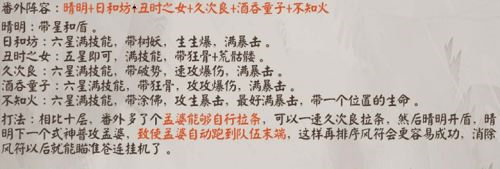 番外阵容：晴明+日和坊+丑时之女+久次良+酒吞童子+不知火
晴明：带星和盾。
日和坊：六星满技能，带树妖，生生爆，满暴击。
丑时之女：五星即可，满技能，带狂骨+荒骷髅。
久次良：六星满技能，带破势，速攻爆伤，满暴击。
酒吞童子：六星满技能，带狂骨，攻攻爆伤，满暴击。
不知火：六星满技能，带涂佛，攻生暴击，最好满暴击，带一个位置的生命。
打法：相比十层，番外多了个孟婆能够自行拉条，可以一速久次良拉条，然后晴明开盾，晴
明下一个式神普攻孟婆，致使孟婆自动跑到队伍末端，这样再排序风符会更容易成功，消除
风符以后就能瞄准苍连挂机了。